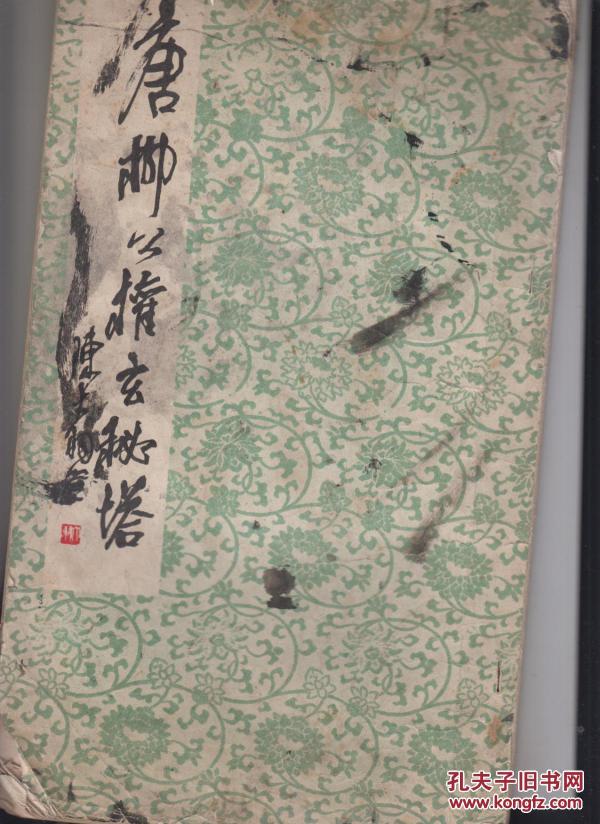 唐柳公權玄秘塔
陳大羽
孔夫子旧书网
www.kongfz.com